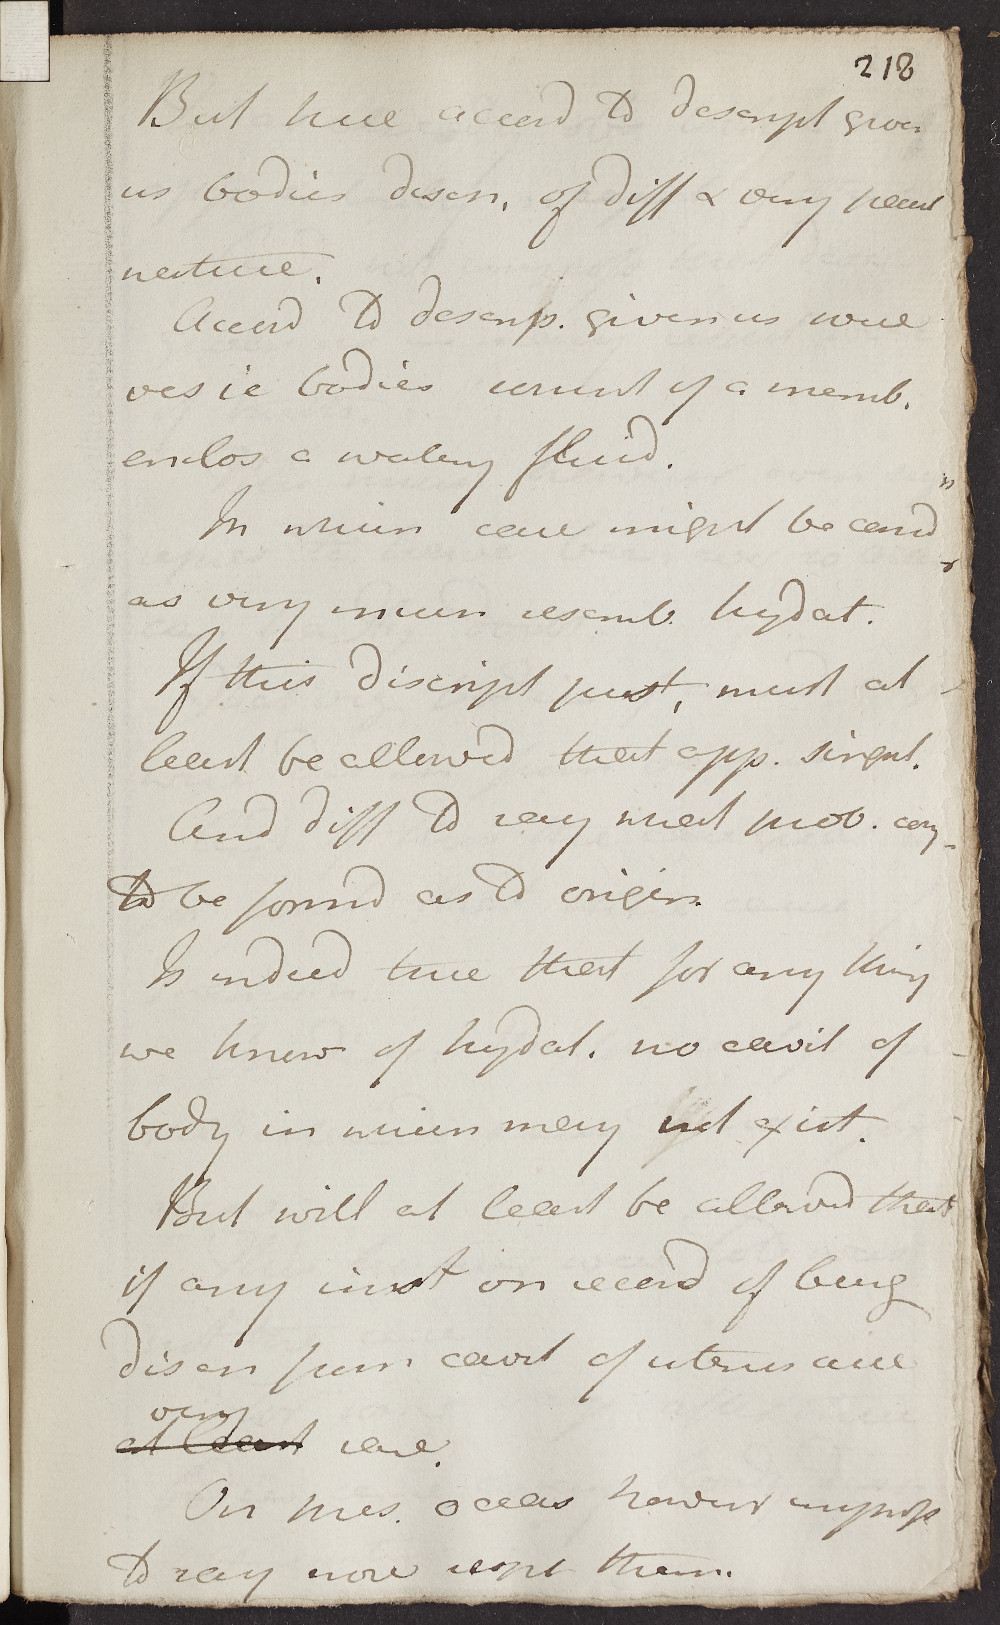 218
But here accord to descript given
us bodies disch. of diff & very pecul
nature.
Accord to descrip. given us were
vesic bodies consist of a memb.
enclos a watery fluid.
In which case might be consid
as very much resemb. hydat.
If this discript just, must at
least be allowed that app. singul.
And diff to say what prob. conj
to be formd as to origin.
Is indeed true that for any thing
we know of hydat. no cavit of
body in which may not exist.
But will at least be allowd that
if any inst on record of being
disch from cavit of uterus are
very
at least rare.
On pres. occas however
to say more respt them.